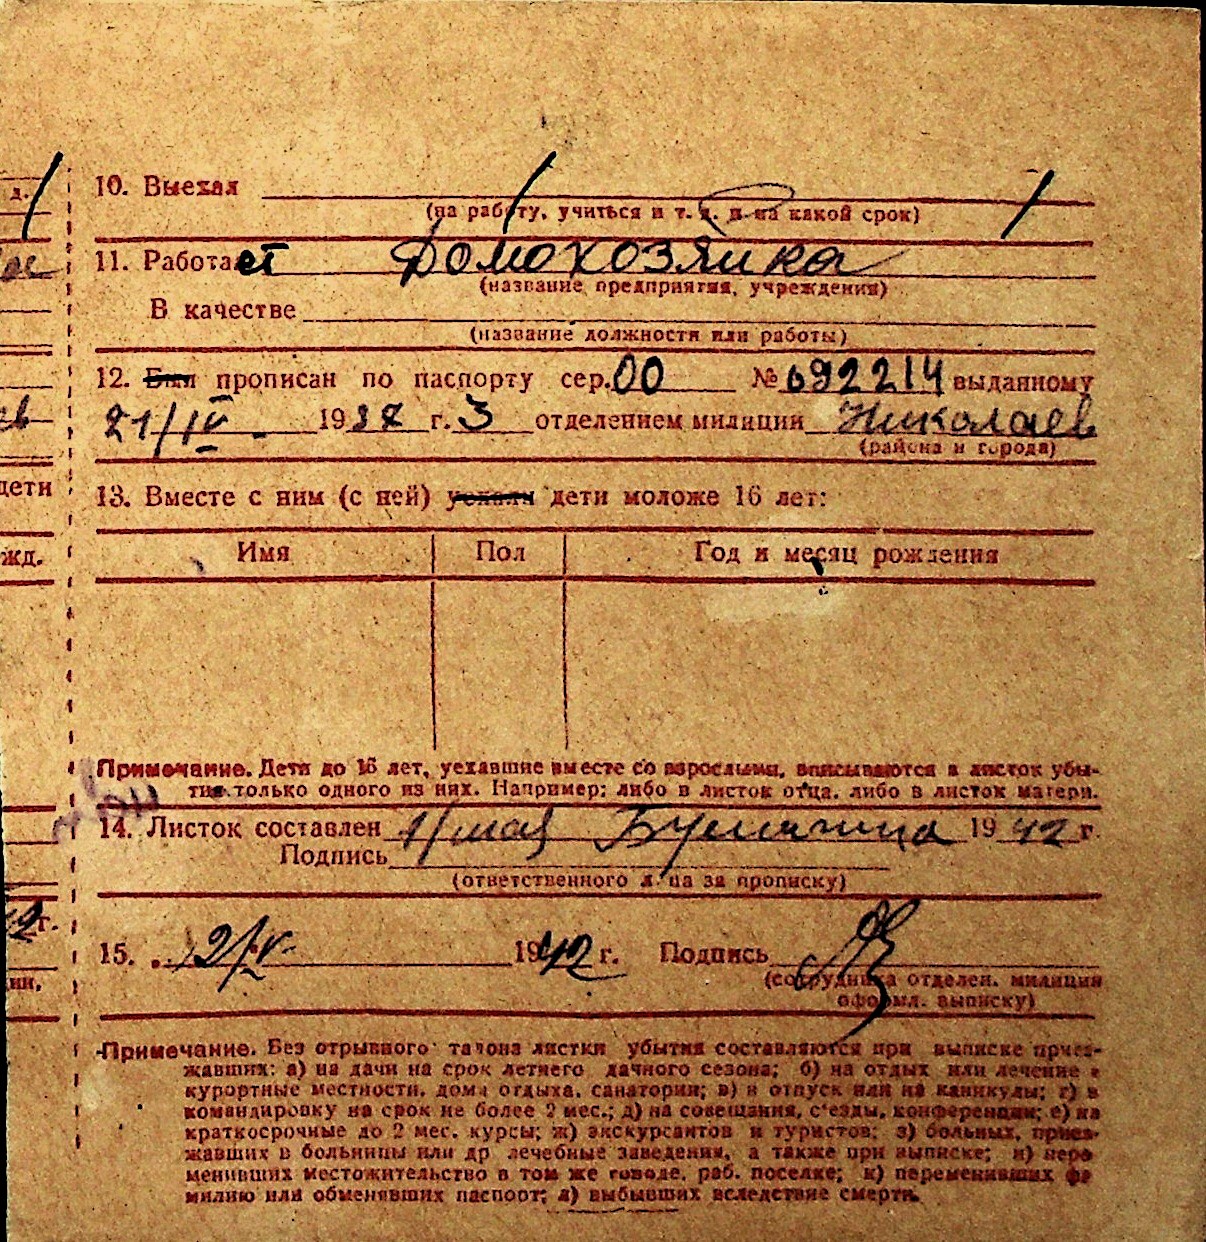 д.
10. Выехал
(на работу, учиться и т. д. и на какой срок)
11. Работает Домохозяйка
(название предприятия, учреждения)
В качестве
(название должности или работы)
12. Был прописан по паспорту сер. 00 № 692214 выданному
21/IV 1938 г. 3 отделением милиции Николаев
(района и города)
дети
13. Вместе с ним (с ней) уехали дети моложе 16 лет:
жд.
Имя Пол Год и месяц рождения
Примечание. Дети до 16 лет, уехавшие вместе со взрослыми, вписываются в листок убы-
тия только одного из них. Например: либо в листок отца, либо в листок матери.
14. Листок составлен 1/мая 1942 г.
Подпись
(ответственного лица за прописку)
г.
15. 2/V 1942 г. Подпись
(сотрудника отделен. милиции
оформл. выписку)
Примечание. Без отрывного талона листки убытия составляются при выписке приез-
жавших: а) на дачи на срок летнего дачного сезона; б) на отдых или лечение в
курортные местности, дома отдыха, санатории; в) в отпуск или на каникулы; г) в
командировку на срок не более 2 мес.; д) на совещания, с'езды, конференции; е) на
краткосрочные до 2 мес. курсы; ж) экскурсантов и туристов; з) больных, приез-
жавших в больницы или др лечебные заведения, а также при выписке; и) пере
менивших местожительство в том же городе, раб. поселке; к) переменивших фа
милию или обменявших паспорт; л) выбывших вследствие смерти.